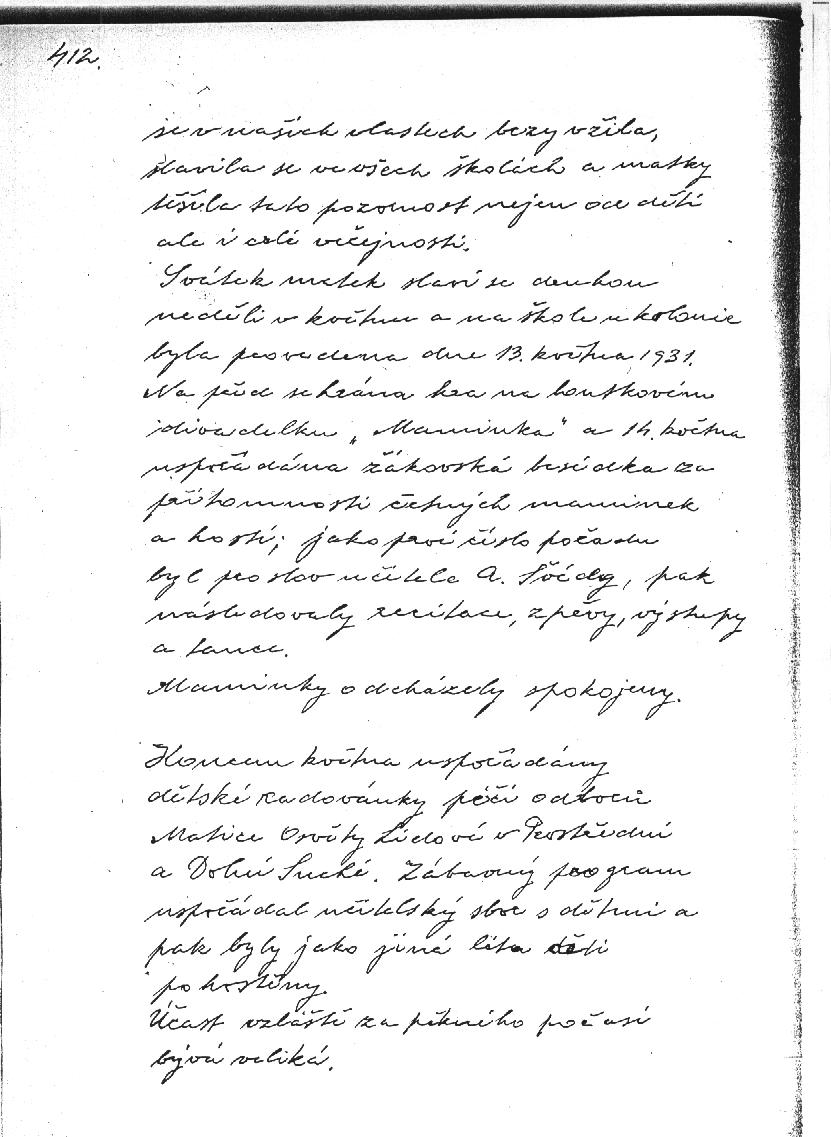 412.
se v našich vlastech brzy vžila,
slavila se ve všech školách a matky
těšila tato pozornost nejen od dětí
ale i celé veřejnosti.
Svátek matek slaví se druhou
neděli v květnu a na škole u kolonie
byla provedena dne 13. května 1931.
Na před sehrána hra na loutkovém
divadelku „Maminka" a 14. května
uspořádána žákovská besídka za
přítomnosti četných maminek
a hostí; jako první číslo pořadu
byl proslov učitele A. pak
následovaly recitace, zpěvy, výstupy
a tance.
Maminky odcházely spokojeny.
Koncem května uspořádány
dětské radovánky péčí odborů
Matice Osvěty Lidové v Prostřední
a Dolní Suché. Zábavný program
uspořádal učitelský sbor s dětmi a
pak byly jako jiná léta děti
pohostěny.
Účast vzláště za pěkného počasí
bývá veliká.